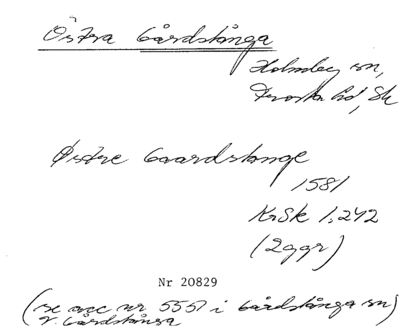 Östra Gårdstånga
Holmby sn,
Frosta hd, Sk
Østre Gaardstange
1581
KrSk 1:242
(2 ggr)
Nr 20829
(se acc nr 5551 i Gårdstånga sn)
V. Gårdstånga